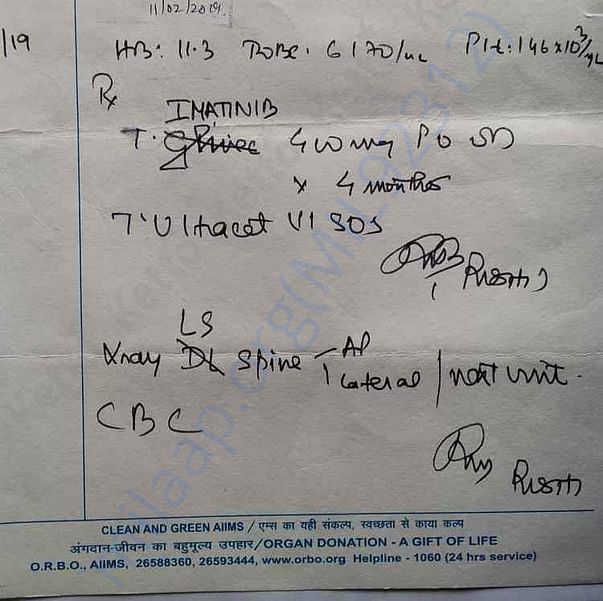 11/02/2019
/19
HB: 11.3 6170/uL Plt: 146x10³/uL
Rx
IMATINIB
T. Glivec 400 mg PO OD
x 4 months
T. Ultracet V1 SOS
LS
Xray DL Spine AP
Lateral / next visit.
CBC
CLEAN AND GREEN AIIMS / एम्स का यही संकल्प, स्वच्छता से काया कल्प
अंगदान-जीवन का बहुमूल्य उपहार/ORGAN DONATION - A GIFT OF LIFE
O.R.B.O., AIIMS, 26588360, 26593444, www.orbo.org Helpline - 1060 (24 hrs service)